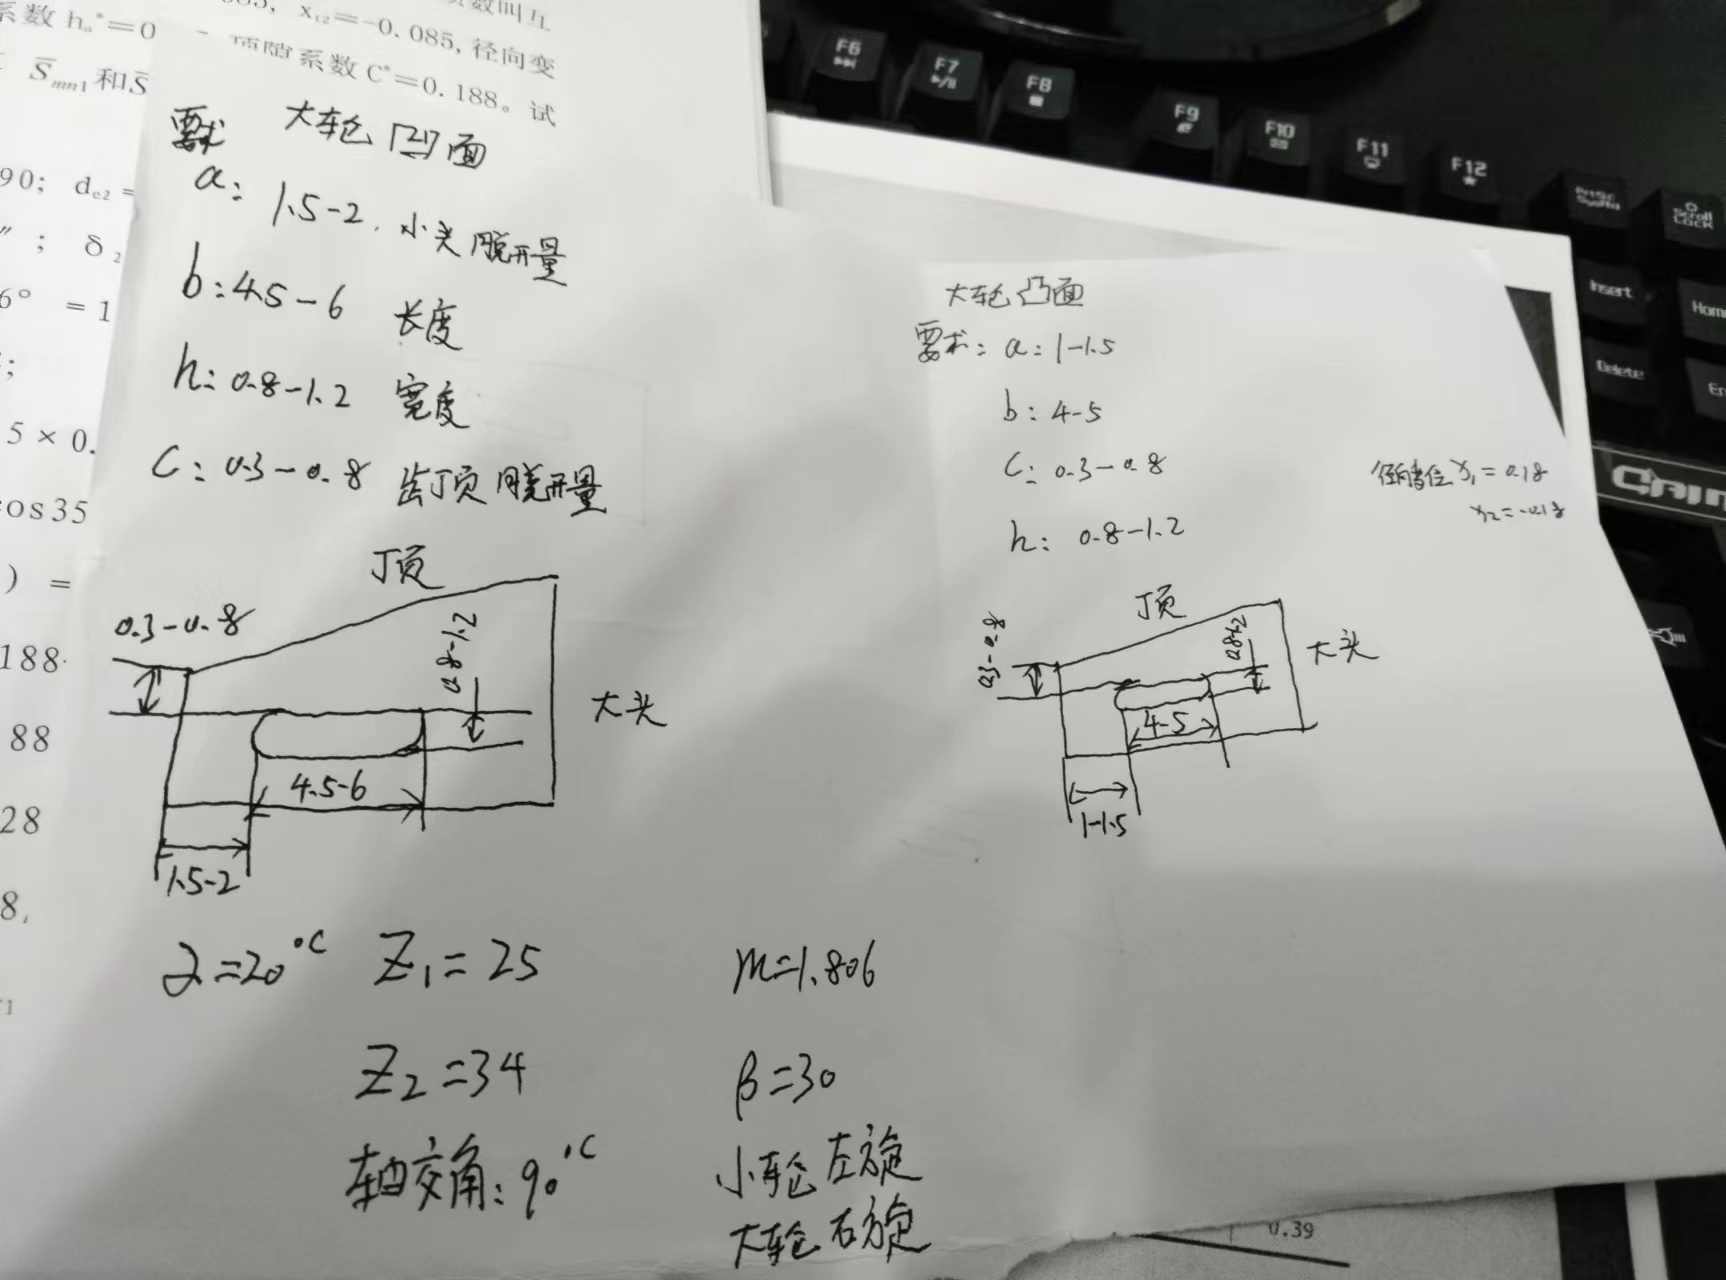 系数 hₐ*=0
x_{t2}=-0.085, 径向变
顶隙系数 C*=0.188。试
S̄_{mn1} 和 S̄
90; d_{e2} =
″; δ₂
6° = 1
;
5 × 0.
cos35
) =
188
88
28
8,
要求 大轮凹面
a: 1.5-2. 小头脱开量
b: 4.5-6 长度
h: 0.8-1.2 宽度
C: 0.3-0.8 齿顶脱开量
顶
0.3-0.8
0.8-1.2
大头
4.5-6
1.5-2
α=20°C Z₁=25 m=1.806
Z₂=34 β=30
轴交角: 90°C 小轮左旋
大轮右旋
大轮凸面
要求: a: 1-1.5
b: 4-5
C: 0.3-0.8
h: 0.8-1.2
径向变位 x₁=0.18
x₂=-0.18
顶
0.3-0.8
大头
4-5
1-1.5
0.39
F6
F7
F8
F9
F10
F11
F12
PrtSc
SysRq
Scroll
Lock
Insert
Hom
Delete
En